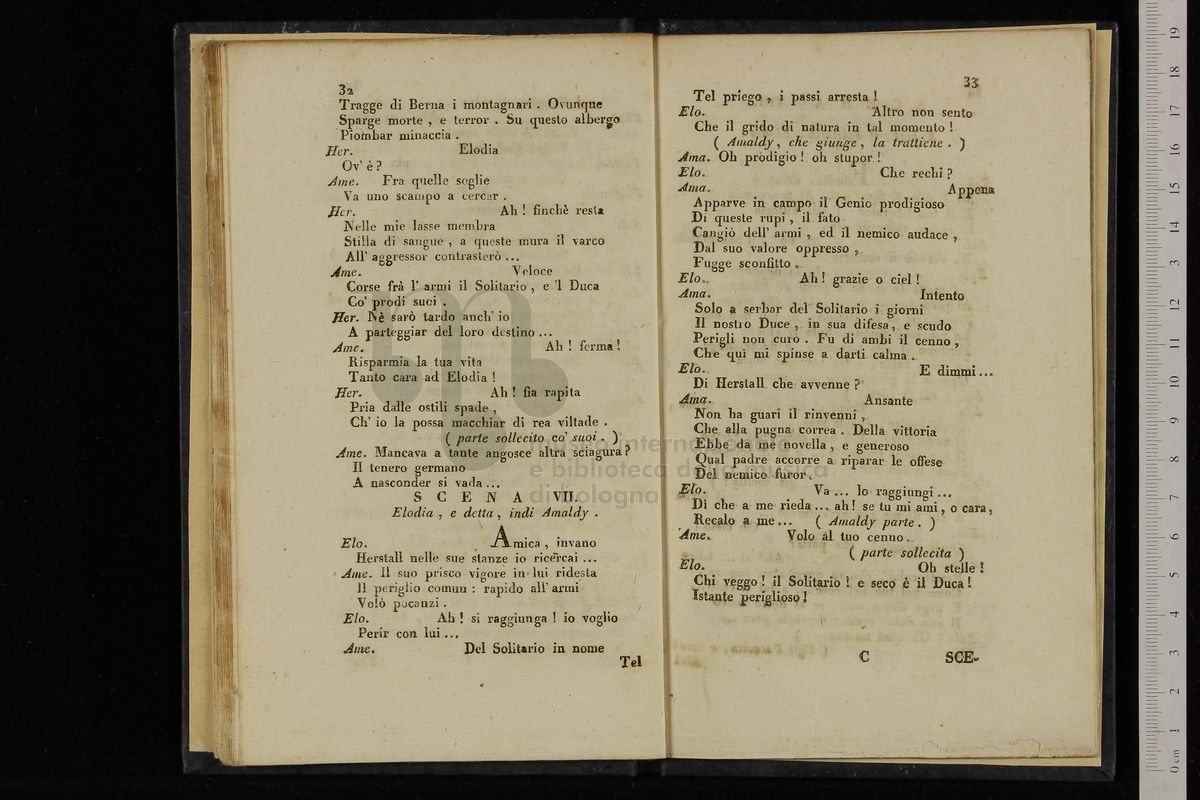 32
Tragge di Berna i montagnari . Ovunque
Sparge morte , e terror . Su questo albergo
Piombar minaccia .
Her. Elodia
Ov' è ?
Ame. Fra quelle soglie
Va uno scampo a cercar .
Her. Ah ! finchè resta
Nelle mie lasse membra
Stilla di sangue , a queste mura il varco
All' aggressor contrasterò ...
Ame. Veloce
Corse frà l' armi il Solitario , e 'l Duca
Co' prodi suoi .
Her. Nè sarò tardo anch' io
A parteggiar del loro destino ...
Ame. Ah ! ferma !
Risparmia la tua vita
Tanto cara ad Elodia !
Her. Ah ! fia rapita
Pria dalle ostili spade ,
Ch' io la possa macchiar di rea viltade .
( parte sollecito co' suoi . )
Ame. Mancava a tante angosce altra sciagura ?
Il tenero germano
A nasconder si vada ...
S C E N A VII.
Elodia , e detta , indi Amaldy .
Elo. Amica , invano
Herstall nelle sue stanze io ricercai ...
Ame. Il suo prisco vigore in lui ridesta
Il periglio comun : rapido all' armi
Volò pocanzi .
Elo. Ah ! si raggiunga ! io voglio
Perir con lui ...
Ame. Del Solitario in nome
Tel
33
Tel priego , i passi arresta !
Elo. Altro non sento
Che il grido di natura in tal momento !
( Amaldy , che giunge , la trattiene . )
Ama. Oh prodigio ! oh stupor !
Elo. Che rechi ?
Ama. Appena
Apparve in campo il Genio prodigioso
Di queste rupi , il fato
Cangiò dell' armi , ed il nemico audace ,
Dal suo valore oppresso ,
Fugge sconfitto .
Elo. Ah ! grazie o ciel !
Ama. Intento
Solo a serbar del Solitario i giorni
Il nostro Duce , in sua difesa , e scudo
Perigli non curò . Fu di ambi il cenno ,
Che quì mi spinse a darti calma .
Elo. E dimmi ...
Di Herstall che avvenne ?
Ama. Ansante
Non ha guari il rinvenni ,
Che alla pugna correa . Della vittoria
Ebbe da me novella , e generoso
Qual padre accorre a riparar le offese
Del nemico furor .
Elo. Va ... lo raggiungi ...
Di che a me rieda ... ah ! se tu mi ami , o cara ,
Recalo a me ... ( Amaldy parte . )
Ame. Volo al tuo cenno .
( parte sollecita )
Elo. Oh stelle !
Chi veggo ! il Solitario ! e seco è il Duca !
Istante periglioso !
C SCE-
museo internazionale
e biblioteca della musica
di bologna
0 cm 1 2 3 4 5 6 7 8 9 10 11 12 13 14 15 16 17 18 19